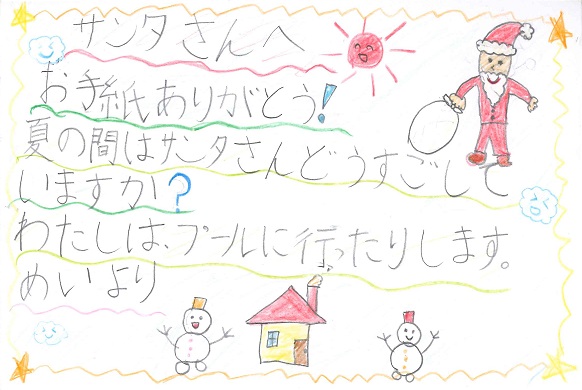 サンタさんへ
お手紙ありがとう!
夏の間はサンタさんどうすごして
いますか?
わたしは、プールに行ったりします。
めいより